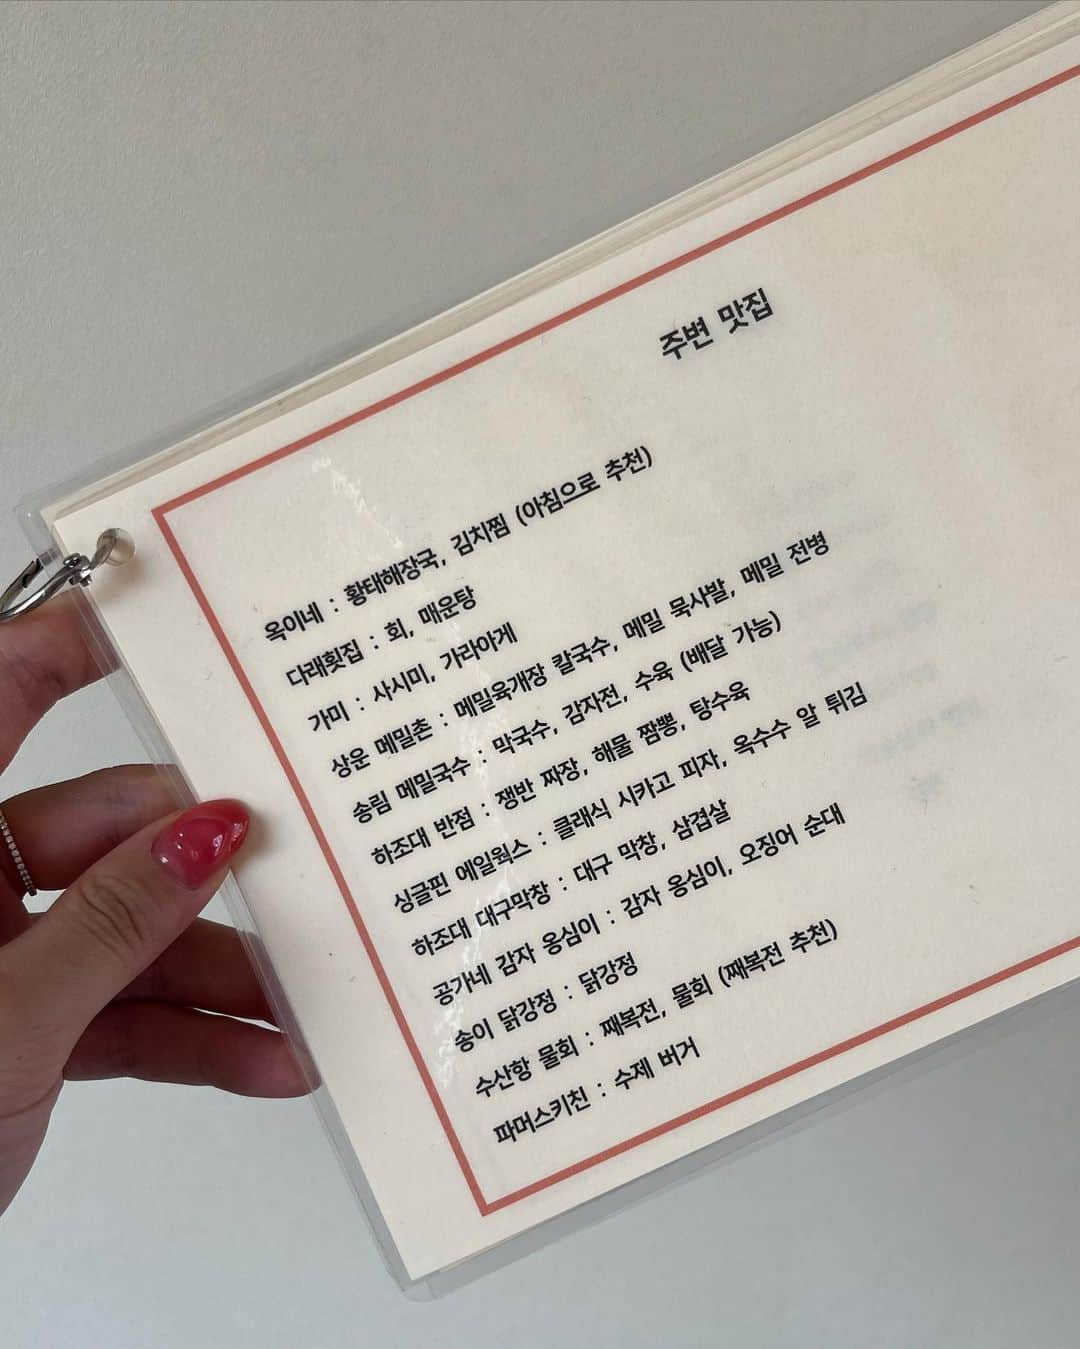 주변 맛집
옥이네 : 황태해장국, 김치찜 (아침으로 추천)
다래횟집 : 회, 매운탕
가미 : 사시미, 가라아게
상운 메밀촌 : 메밀육개장 칼국수, 메밀 묵사발, 메밀 전병
송림 메밀국수 : 막국수, 감자전, 수육 (배달 가능)
하조대 반점 : 쟁반 짜장, 해물 짬뽕, 탕수육
싱글핀 에일웍스 : 클래식 시카고 피자, 옥수수 알 튀김
하조대 대구막창 : 대구 막창, 삼겹살
공가네 감자 옹심이 : 감자 옹심이, 오징어 순대
송이 닭강정 : 닭강정
수산항 물회 : 째복전, 물회 (째복전 추천)
파머스키친 : 수제 버거